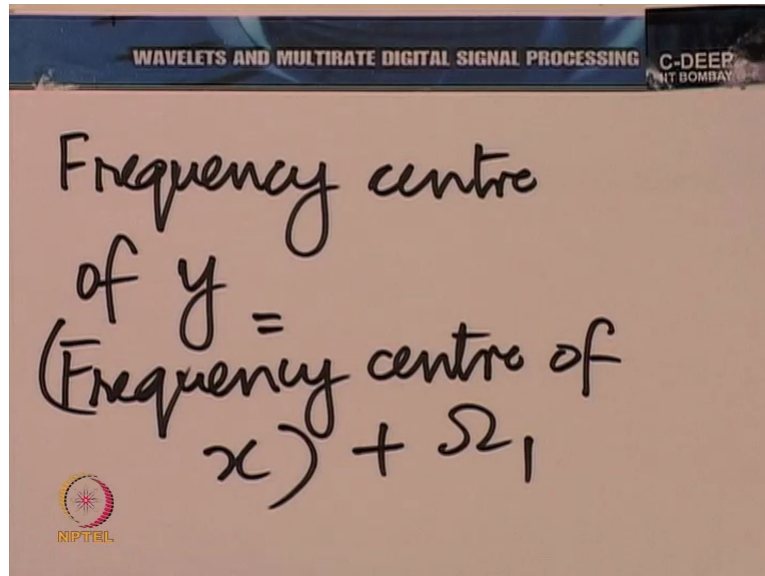 WAVELETS AND MULTIRATE DIGITAL SIGNAL PROCESSING
C-DEEP
IIT BOMBAY
Frequency centre
of y =
(Frequency centre of
x) + Ω₁
NPTEL